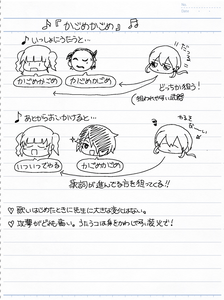 ♪『かごめかごめ』♫
♪いっしょにうたうと…
かごめかごめ
かごめかごめ
どっちか狙う!
狙われやすい
♪あとからおいかけると…
いついつでやる
かごめかごめ
歌詞が進んでる方を狙ってくる!!
♡歌いはじめたときに先生に大きな変化はない。
♡攻撃がとても痛い。うたうコは身をかわし弓、破火で!